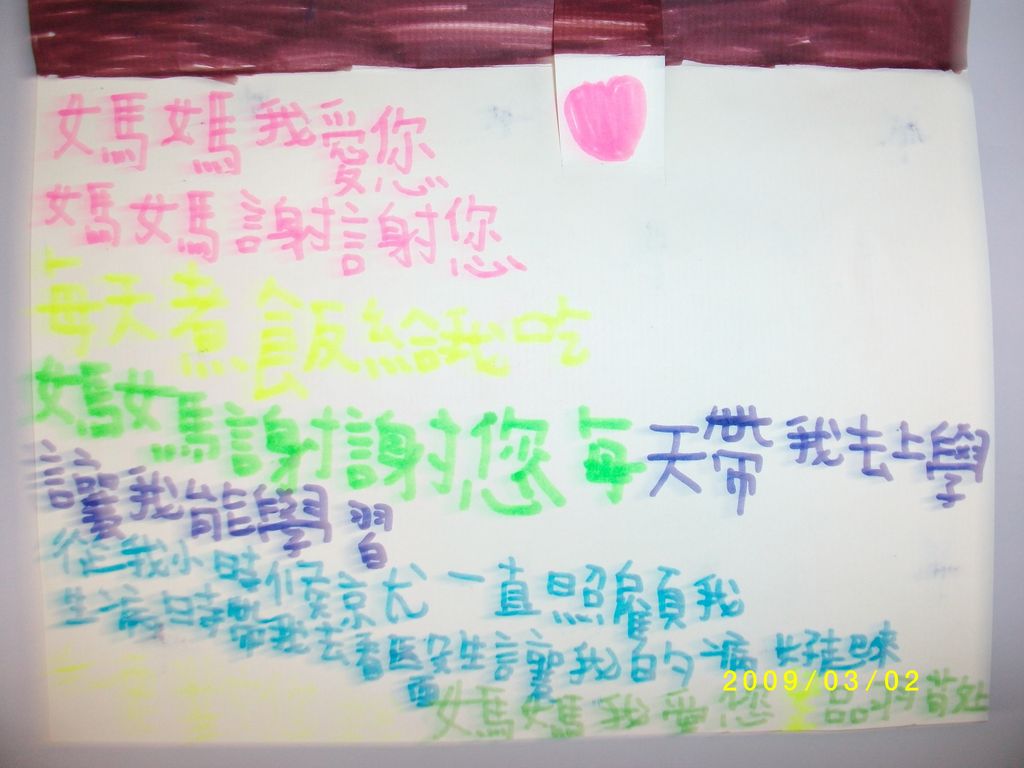 媽媽我愛您
媽媽謝謝您
每天煮飯給我吃
媽媽謝謝您每天帶我去上學
讓我能學習
從我小時候就一直照顧我
生病時帶我去看醫生讓我的病好起來
媽媽我愛您
2009/03/02